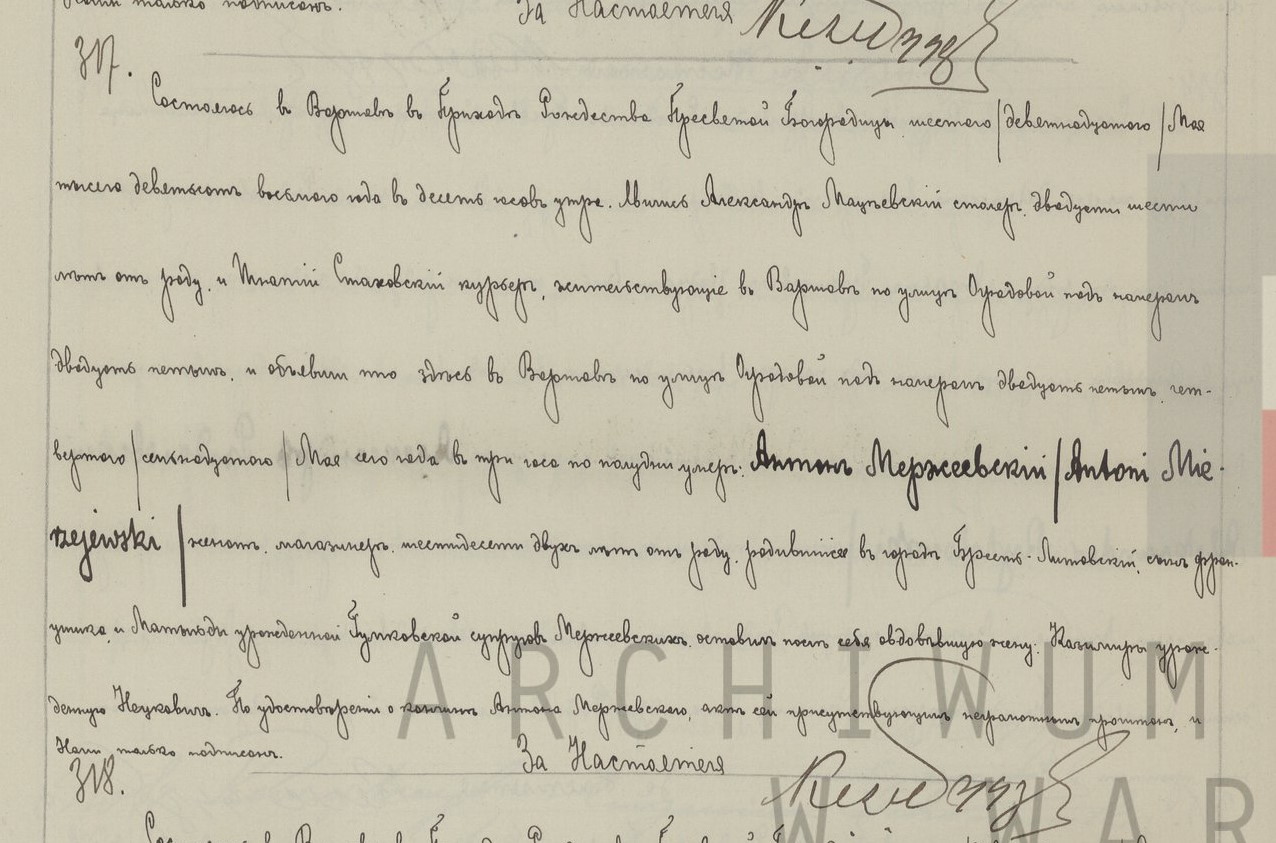 Нами только подписанъ.
За Настоятеля
317.
Состоялось въ Варшавѣ въ Приходѣ Рождества Пресвятой Богородицы шестого/девятнадцатого/Мая
тысяча девятьсотъ восьмого года въ десять часовъ утра. Явились Александръ Мацѣевскій столяръ, двадцати шести
лѣтъ отъ роду, и Игнатій Стаховскій курьеръ, жительствующіе въ Варшавѣ по улицѣ Огродовой подъ номеромъ
двадцать пятымъ, и объявили что здѣсь въ Варшавѣ по улицѣ Огродовой подъ номеромъ двадцать пятымъ, чет-
вертого/семнадцатого/Мая сего года въ три часа по полудни умеръ: Антонъ Мержеевскій/Antoni Mie-
rzejewski/женатъ, магазинеръ, шестидесяти двухъ лѣтъ отъ роду, родившійся въ городѣ Брестъ-Литовскій, сынъ Фран-
цишка, и Матильды урожденной Гутковской супруговъ Мержеевскихъ, оставилъ послѣ себя овдовѣвшую жену: Казимиру урож-
денную Нецковичъ. По удостовѣреніи о кончинѣ Антона Мержеевскаго, актъ сей присутствующимъ неграмотнымъ прочтенъ, и
Нами только подписанъ.
За Настоятеля
318.
ARCHIWUM
W WAR